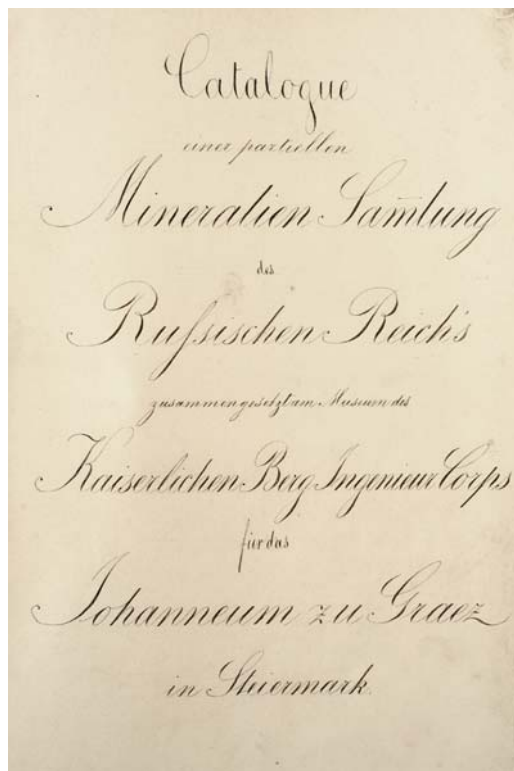 Catalogue
einer partiellen
Mineralien Sam̅lung
des
Ruſsischen Reich's
zusammengesetzt am Museum des
Kaiserlichen Berg Ingenieur Corps
für das
Johanneum zu Graez
in Steiermark.